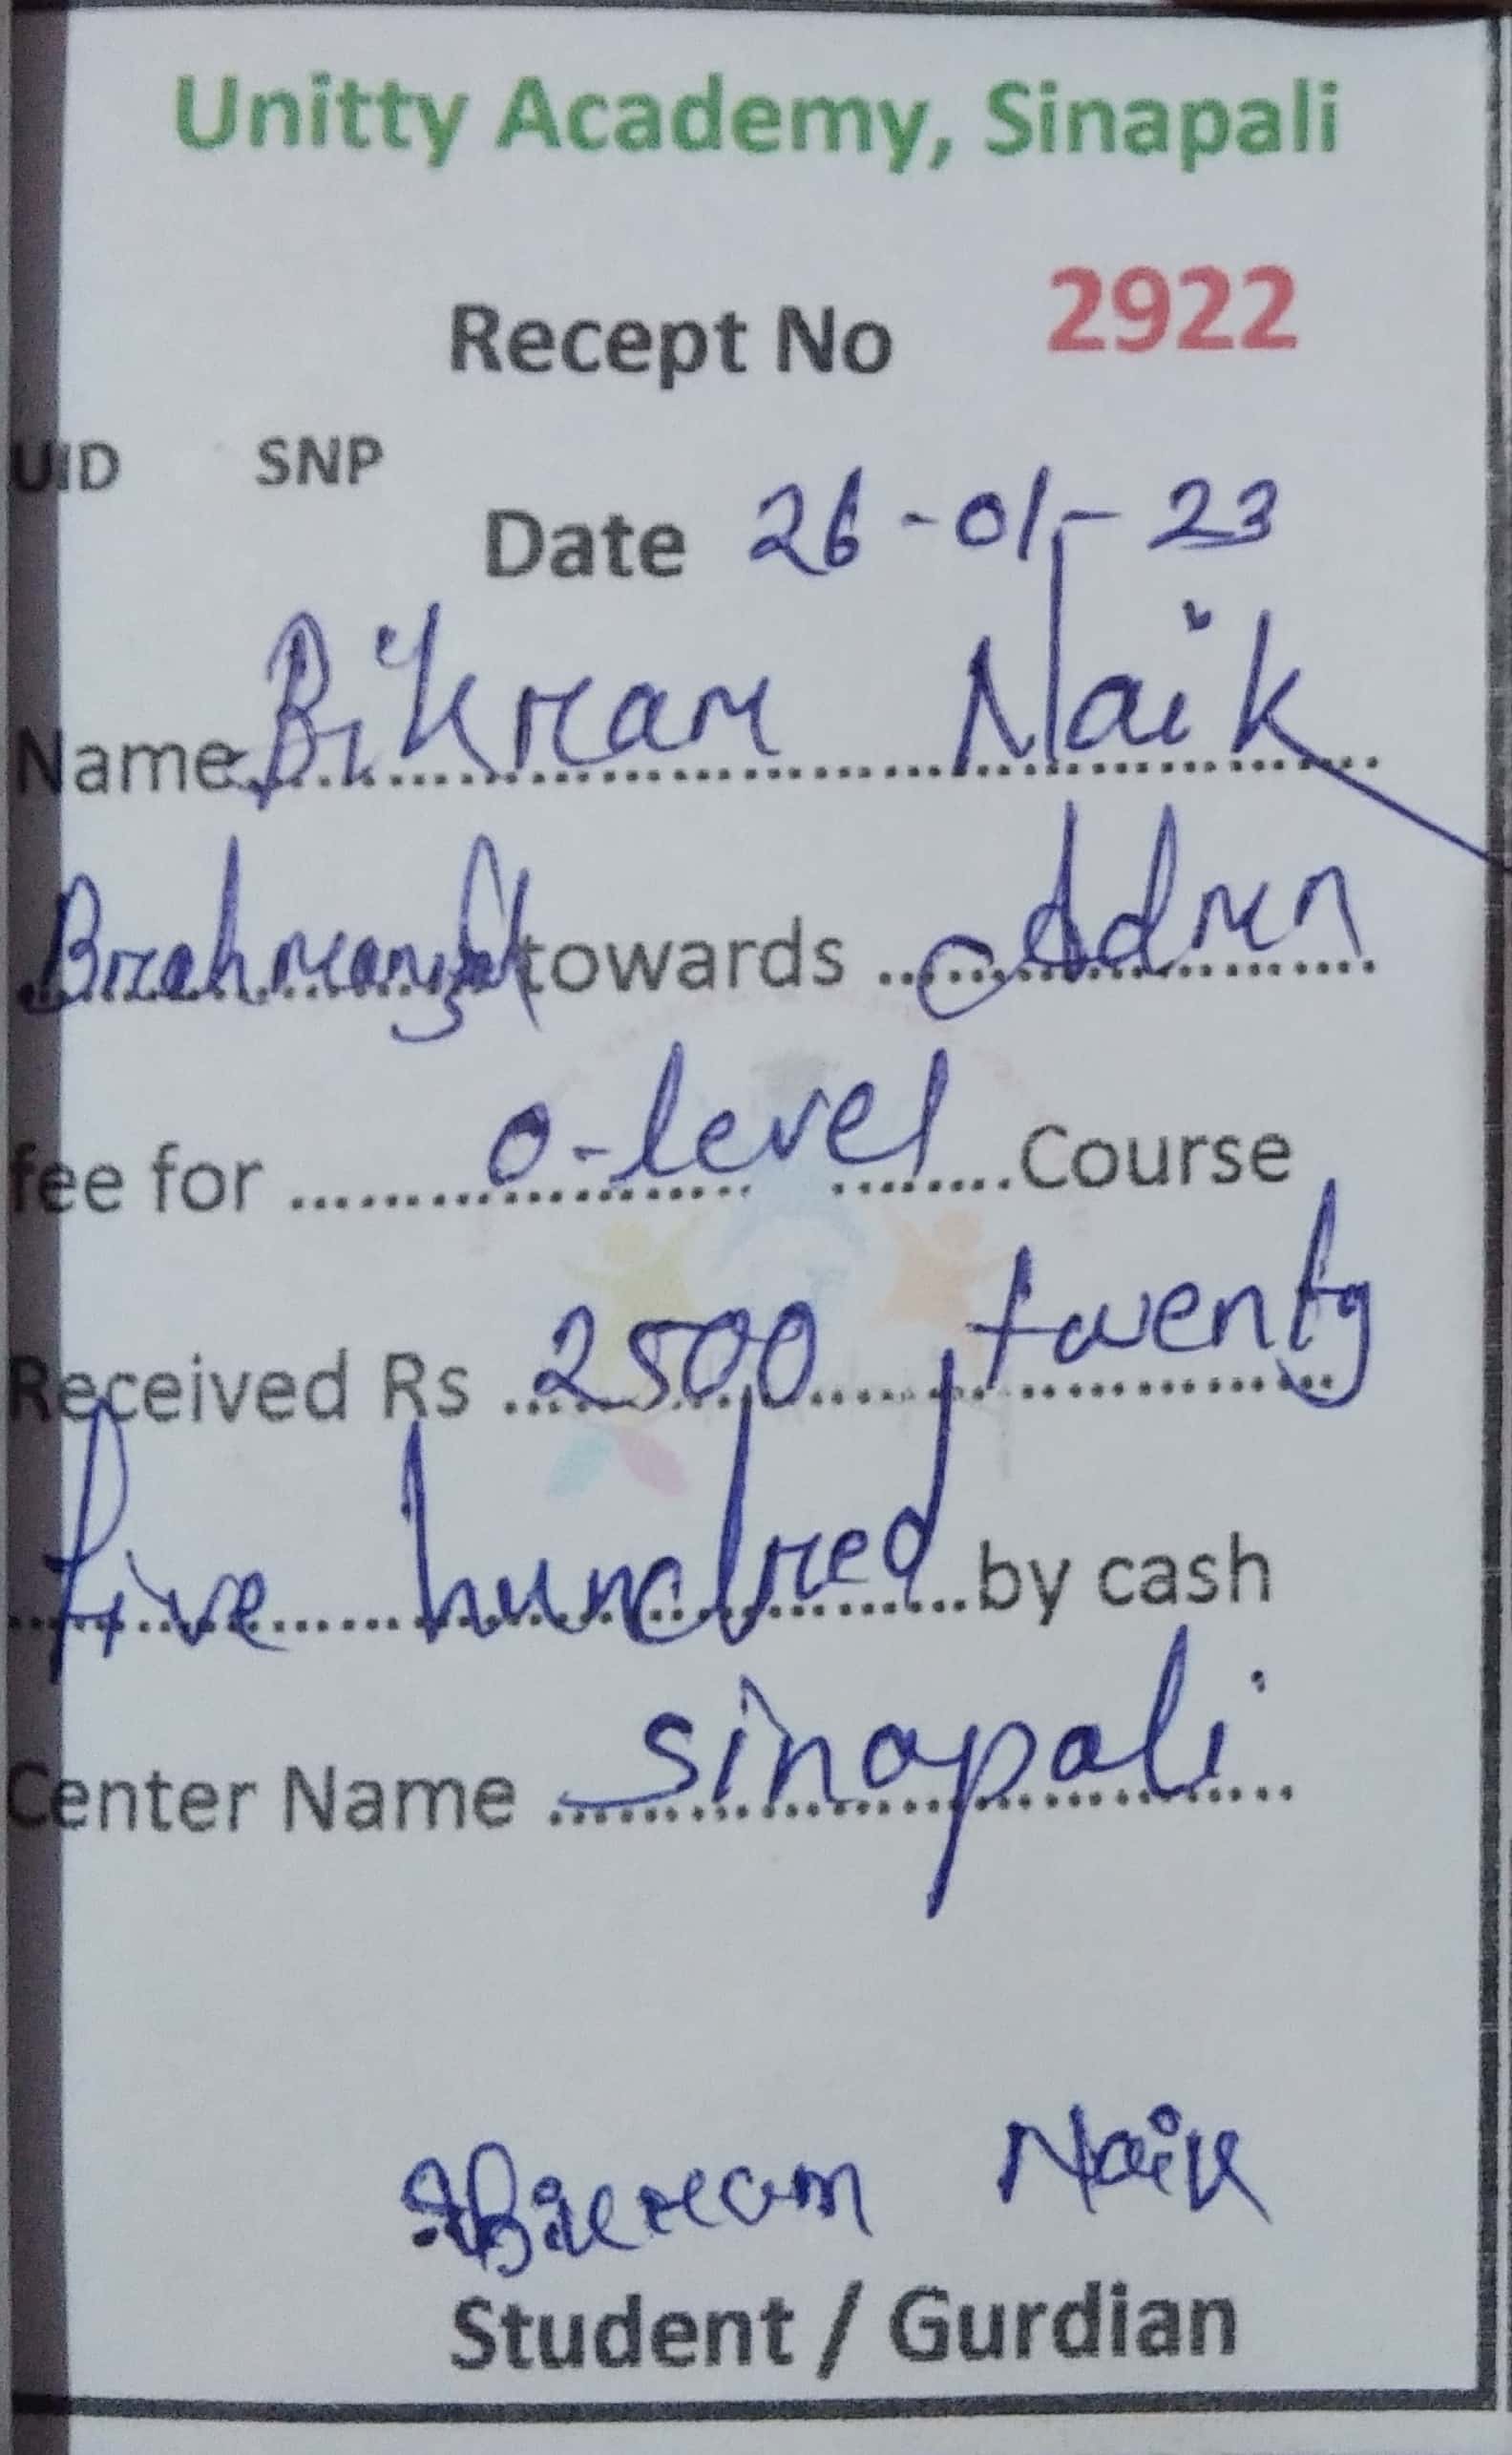 Unitty Academy, Sinapali
Recept No 2922
UID SNP
Date 26-01-23
Name Bikram Naik
towards Admn
fee for O-level Course
Received Rs 2500, twenty
five hundred by cash
Center Name Sinapali
Bikram Naik
Student / Gurdian